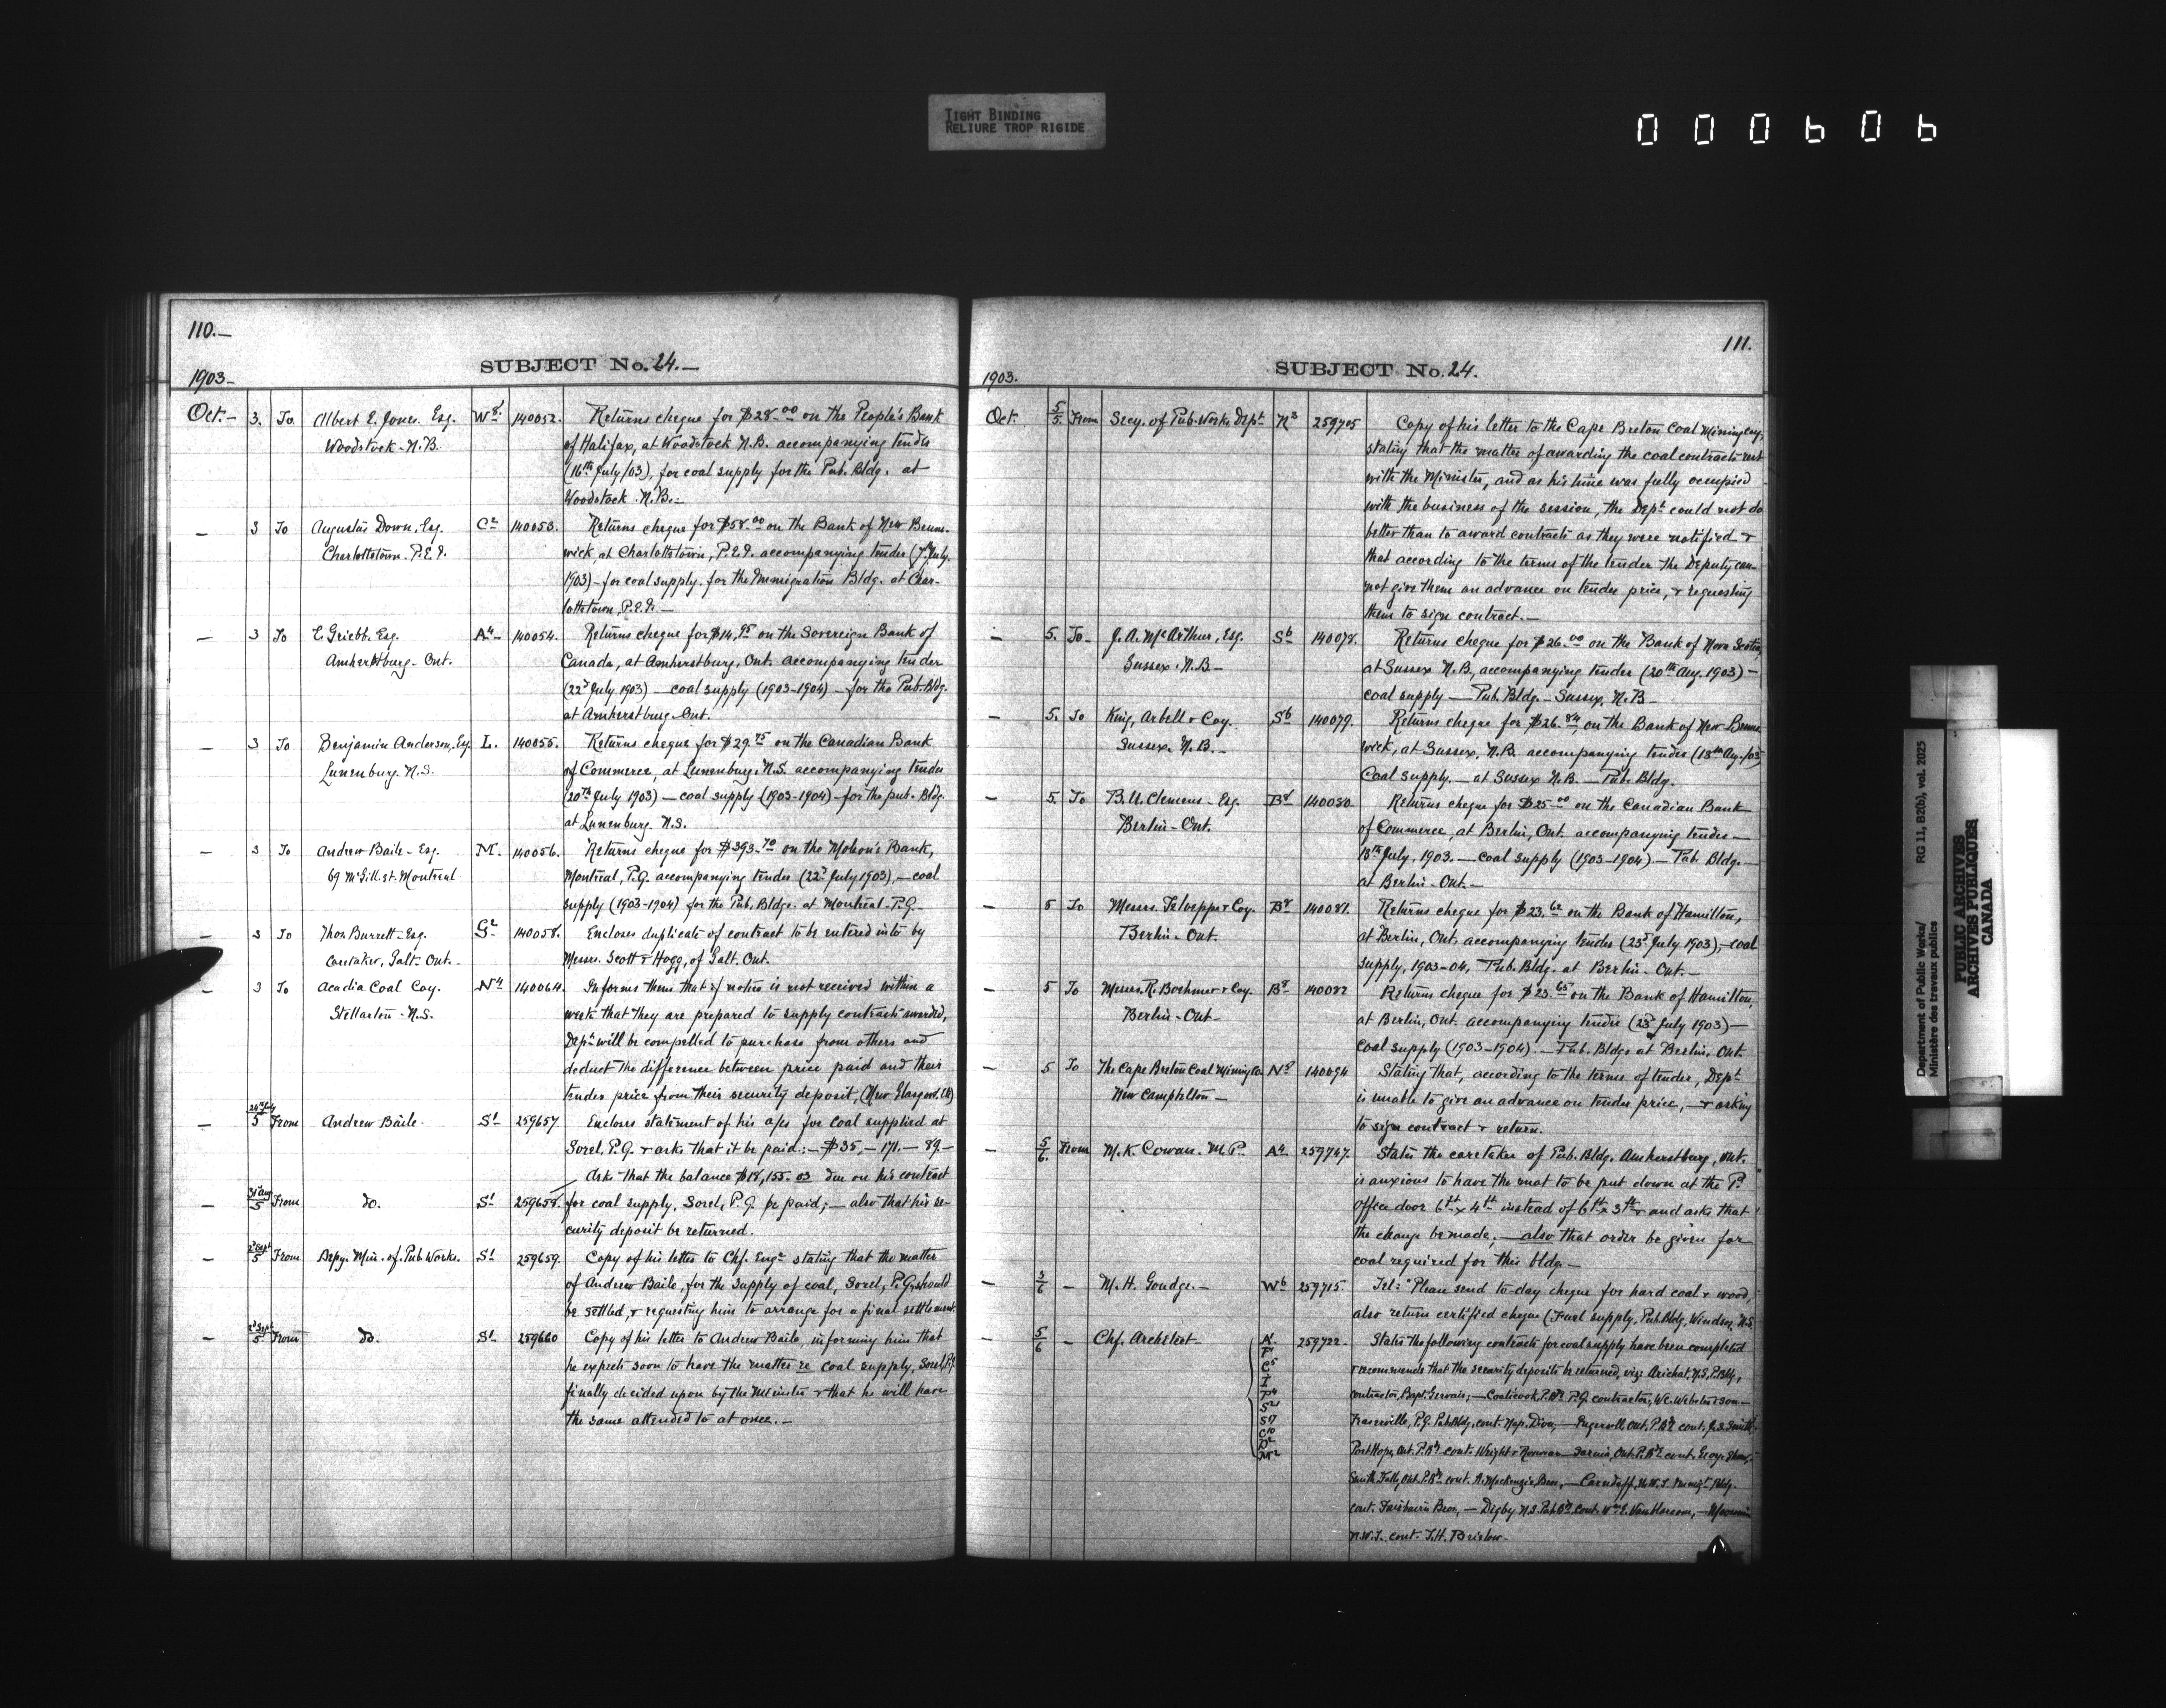 TIGHT BINDING
RELIURE TROP RIGIDE
000606
110.—
SUBJECT No. 24.—
1903—
Oct.— 3. To Albert E. Jones. Esq. W8. 140052. Returns cheque for $28.00 on the People's Bank
Woodstock. N.B. of Halifax, at Woodstock N.B. accompanying tender
(16th July/03), for coal supply for the Pub. Bldg. at
Woodstock. N.B.—
— 3 To Augustus Down, Esq. C2 140053. Returns cheque for $58.00 on the Bank of New Bruns-
Charlottetown. P.E.I. wick, at Charlottetown, P.E.I. accompanying tender (7th July
1903)— for coal supply. for the Immigration Bldg. at Char-
lottetown, P.E.I.—
— 3 To Esq. A4 140054. Returns cheque for $14.95 on the Sovereign Bank of
Amherstburg. Ont. Canada, at Amherstburg, Ont. accompanying tender
(22d July 1903) — coal supply (1903-1904) — for the Pub. Bldg.
at Amherstburg. Ont.
— 3 To Benjamin Anderson, Esq L. 140055. Returns cheque for $29.75 on the Canadian Bank
Lunenburg. N.S. of Commerce, at Lunenburg. N.S. accompanying tender
(20th July 1903) — coal supply (1903-1904) — for the pub. Bldg.
at Lunenburg. N.S.
— 3 To Andrew Baile — Esq. M. 140056. Returns cheque for $393.70 on the Molson's Bank,
69 McGill st. Montreal Montreal, P.Q. accompanying tender (22d July 1903), — coal
supply (1903-1904) for the Pub. Bldgs. at Montreal. P.Q.—
— 3 To Thos Burrett — Esq. G2 140058. Encloses duplicate of contract to be entered into by
Caretaker, Galt. Ont.— Messrs. Scott & Hogg, of Galt. Ont.
— 3 To Acadia Coal Coy. N4 140064. Informs them that if notice is not received within a
Stellarton. N.S. week that they are prepared to supply contracts awarded,
Dept. will be compelled to purchase from others and
deduct the difference between price paid and their
tender price from their security deposit, (New Glasgow. )
— 24th July/5 From Andrew Baile. S1 259657 Encloses statement of his a/cs for coal supplied at
Sorel, P.Q. & asks that it be paid:— $35,— 171.— 89.—
Asks that the balance $18,155.03 due on his contract
— 31 Aug/5 From do. S1 259658. for coal supply, Sorel, P.Q. be paid; — also that his se-
curity deposit be returned.
— 2d Sept/5 From Depy. Min. of. Pub Works. S1 259659. Copy of his letter to Chf. Engr stating that the matter
of Andrew Baile, for the supply of coal, Sorel, P.Q. should
be settled, & requesting him to arrange for a final settlement.
— 2d Sept/5 From do. S1 259660 Copy of his letter to Andrew Baile, informing him that
he expects soon to have the matter re coal supply, Sorel, P.Q.
finally decided upon by the Minister & that he will have
the same attended to at once.—
111.
SUBJECT No. 24.
1903.
Oct. 5/5. From Secy. of Pub. Works Dept N3 259705 Copy of his letter to the Cape Breton Coal Mining Coy,
stating that the matter of awarding the coal contracts rest
with the Minister, and as his time was fully occupied
with the business of the session, the Dept. could not do
better than to award contracts as they were notified &
that according to the terms of the tender the Deputy can-
not give them an advance on tender price, & requesting
them to sign contract.—
— 5. To— J. A. McArthur, Esq. S6 140078. Returns cheque for $26.00 on the Bank of Nova Scotia,
Sussex. N.B.— at Sussex N.B., accompanying tender (20th Aug. 1903) —
coal supply — Pub. Bldg.— Sussex, N.B—
— 5. To King, Arbell & Coy. S6 140079. Returns cheque for $26.84, on the Bank of New Bruns-
Sussex. N.B.— wick, at Sussex, N.B. accompanying tender (18th Aug./03)
Coal supply.— at Sussex N.B.— Pub. Bldg.
— 5. To B. U. Clemens — Esq. B8 140080. Returns cheque for $25.00 on the Canadian Bank
Berlin — Ont. of Commerce, at Berlin, Ont. accompanying tender —
18th July, 1903. — coal supply (1903-1904) — Pub. Bldg.—
at Berlin — Ont.—
— 5 To Messrs. Kloepper & Coy. B8 140081. Returns cheque for $23.62 on the Bank of Hamilton,
Berlin — Ont. at Berlin, Ont. accompanying tender (23d July 1903), — coal
supply, 1903-04, Pub. Bldg. at Berlin. Ont.—
— 5 To Messrs. R. Boehmer & Coy. B8 140082 Returns cheque for $23.65 on the Bank of Hamilton,
Berlin — Ont— at Berlin, Ont. accompanying tender (23d July 1903) —
Coal supply (1903-1904). — Pub. Bldgs at Berlin, Ont.
— 5 To The Cape Breton Coal Mining Co. N8 140094 Stating that, according to the terms of tender, Dept.
New Campbelton — is unable to give an advance on tender price, — & asking
to sign contract & return.
— 5/6. From M. K. Cowan. M.P. A4 259747. States the caretaker of Pub. Bldg. Amherstburg, Ont.
is anxious to have the mat to be put down at the P.
office door 6ft x 4ft instead of 6ft x 3ft & and asks that
the change be made; — also that order be given for
coal required for this bldg.—
— 3/6 — M. H. Goudge.— W6 259715. Tel: "Please send to-day cheque for hard coal & wood,
also return certified cheque (Fuel supply, Pub. Bldg, Windsor, N.S.
— 5/6 — Chf. Architect — 259722. States the following contracts for coal supply have been completed
& recommends that the security deposits be returned, viz: Arichat, N.S. P. Bldg,
contractor, Bapt. Gervais; — Coaticook, P. Bg P.Q. contractors, W.C. Webster & Son —
Fraserville, P.Q. Pub. Bldg, cont. Nap. Dion, — Ingersoll, Ont. P. Bg cont. J. S. Smith.
Port Hope, Ont. P. Bg cont. Wright & — Sarnia, Ont. P. Bg cont. Shaw,
Smith Falls, Ont. P. Bg cont. A. Mackenzie Bros, — Carnduff, N.W.T. Immigt Bldg.
cont. Fairbairn Bros, — Digby N.S. Pub. Bg. Cont. Wm E. VanBlarcom, —
N.W.T. cont. T.H. Bristow.
Department of Public Works/
Ministère des travaux publics
RG 11, B2(b), vol. 2025
PUBLIC ARCHIVES
ARCHIVES PUBLIQUES
CANADA